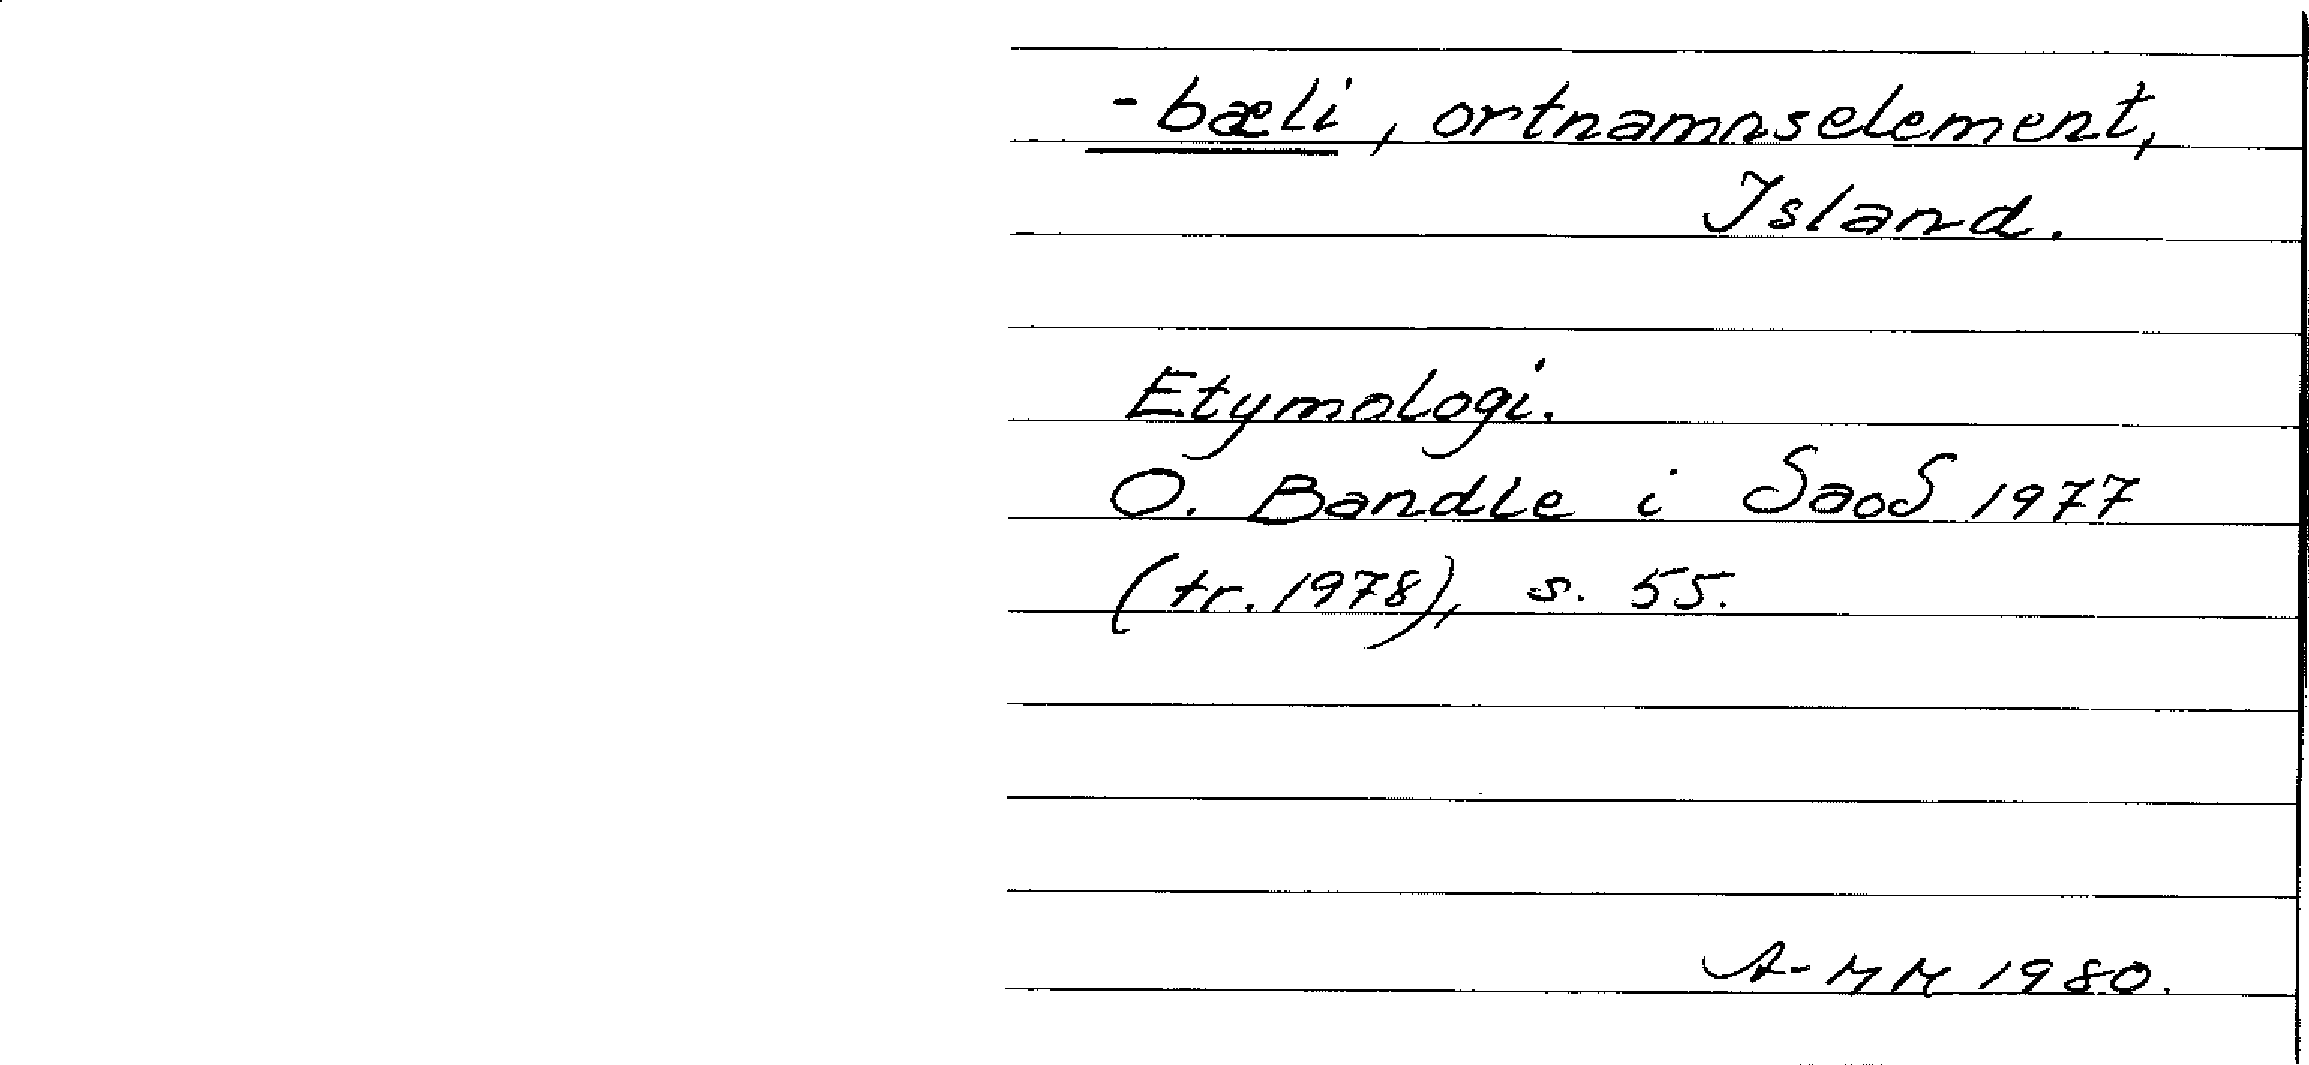 -bæli, ortnamnselement,
Island.
Etymologi.
O. Bandle i SaoS 1977
(tr. 1978), s. 55.
A-MM 1980.